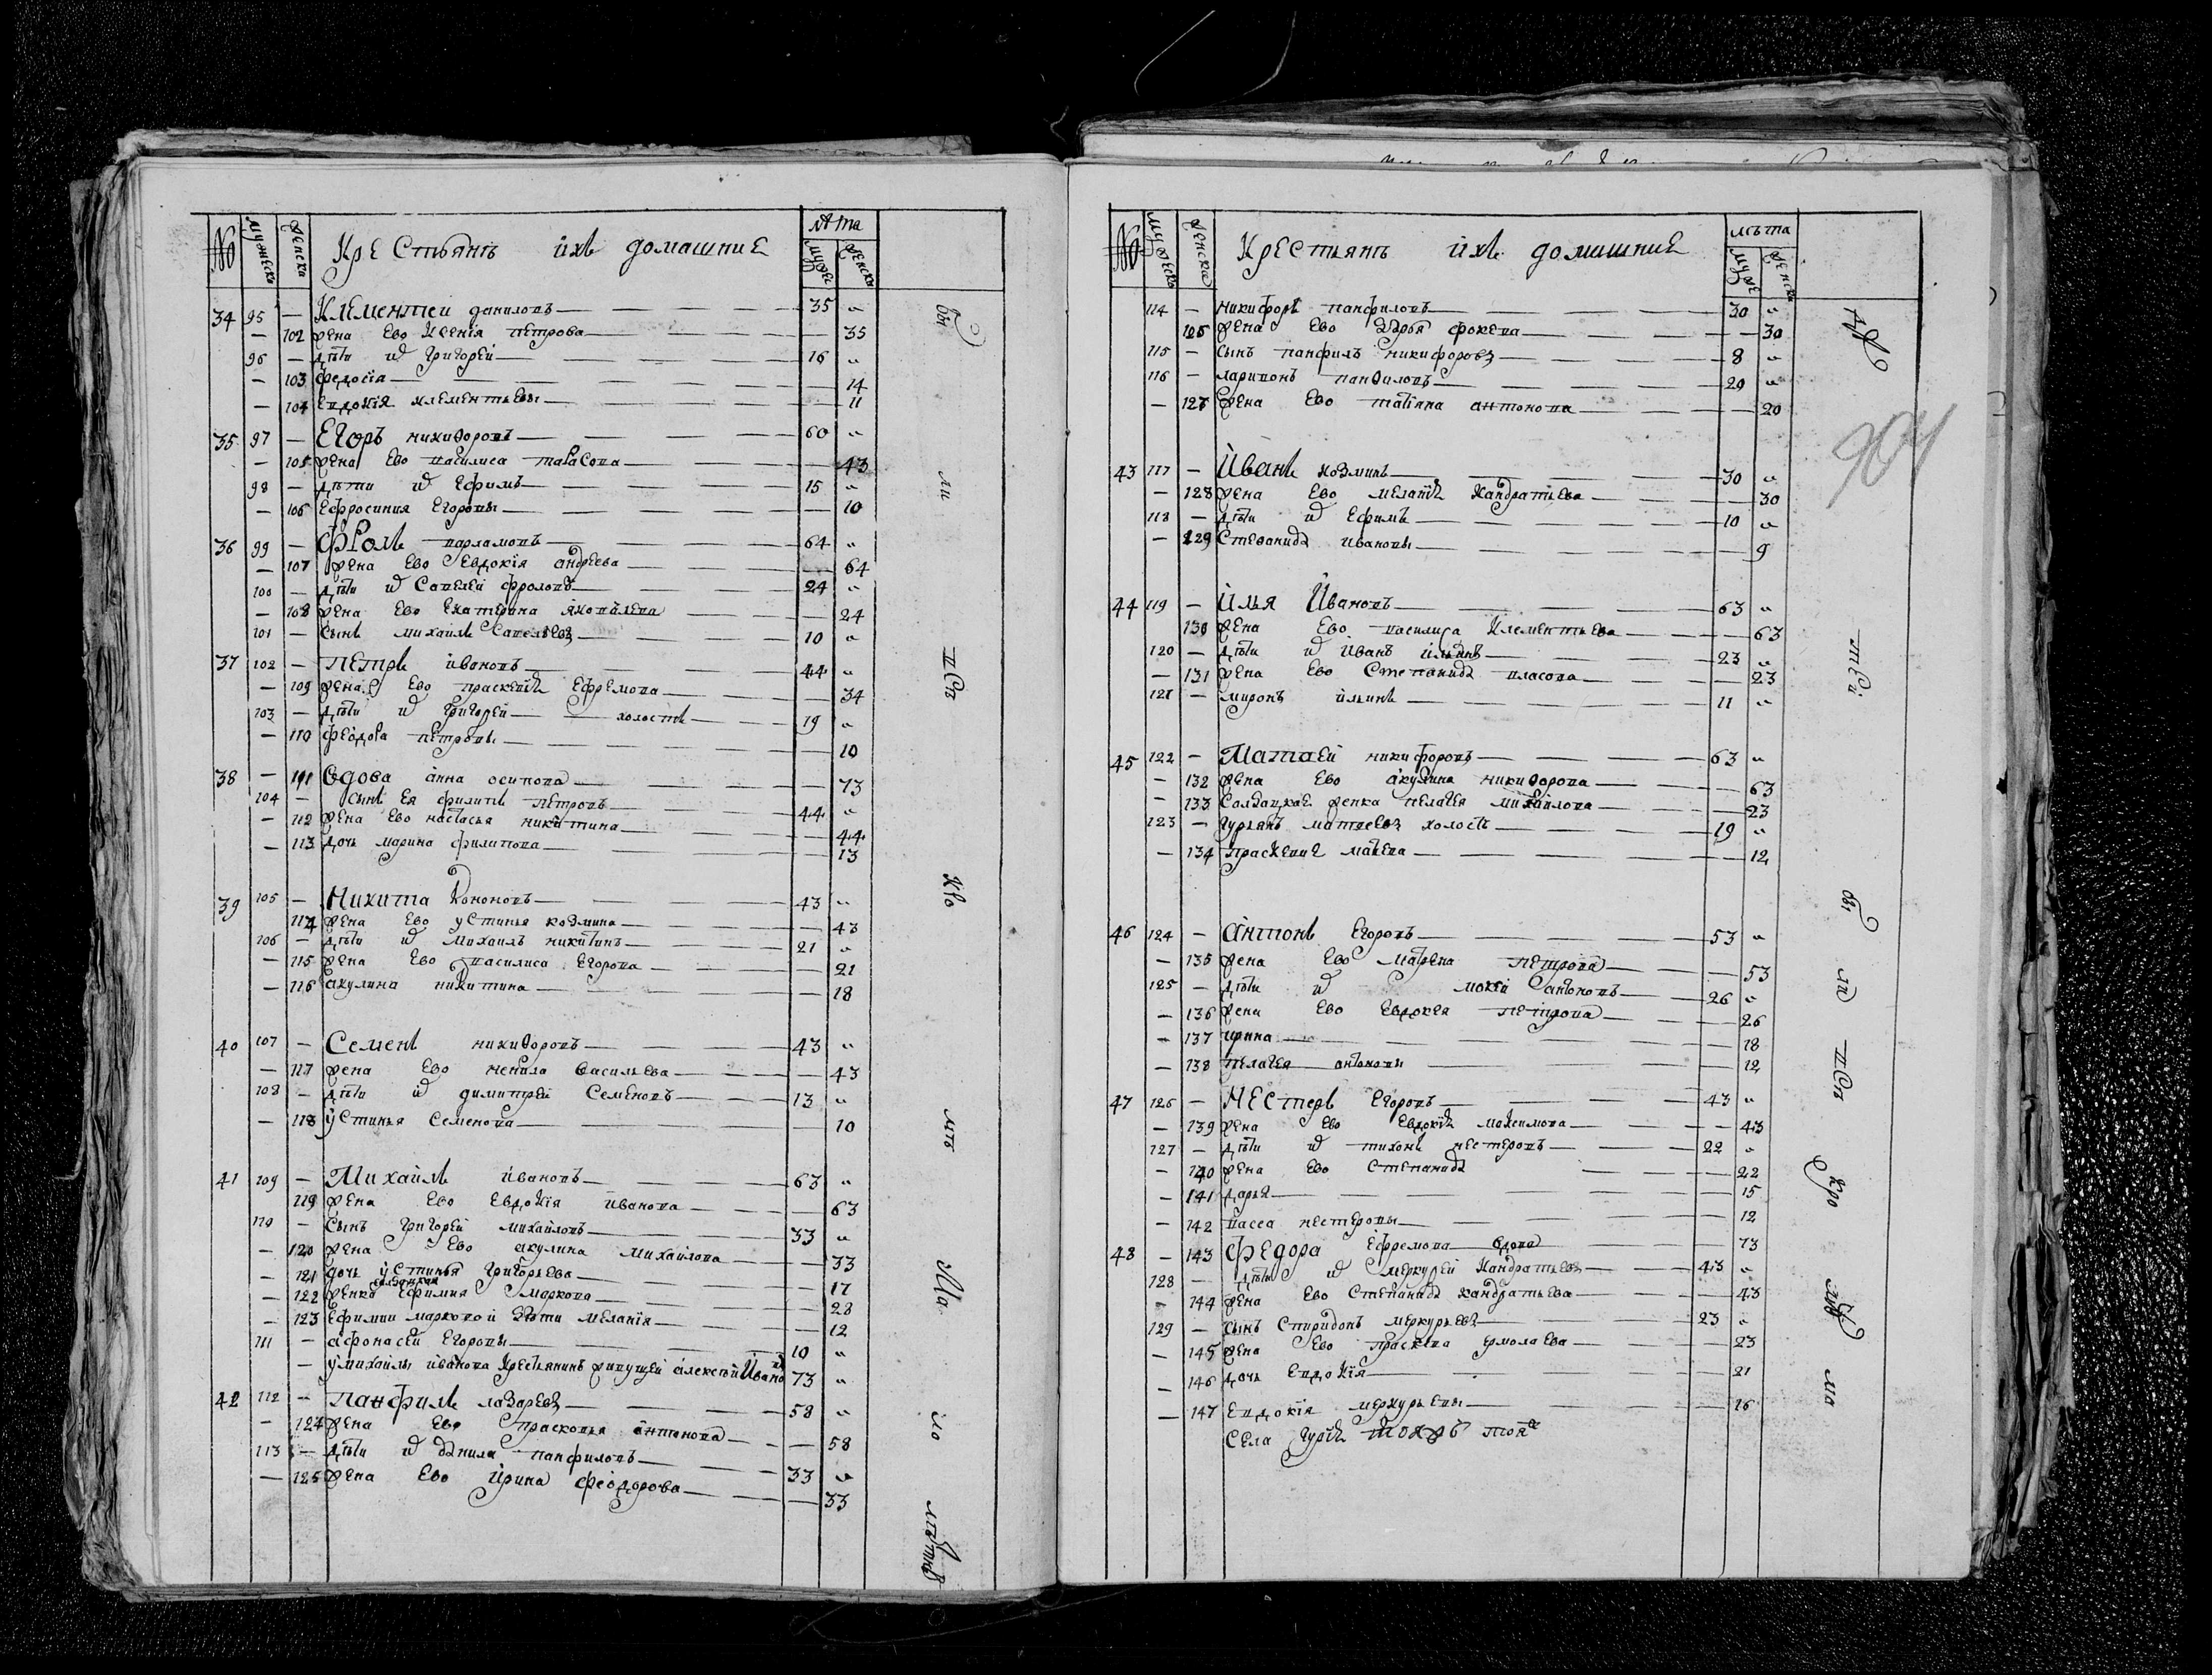 № мужеска женска Крестьянъ ихъ домашние лѣта мужес женск
34 95 — Клементей даниловъ 35 "
— 102 жена Ево Ксенія петрова — 35
96 — дѣти ихъ григорей 16 "
— 103 федосія — 14
— 104 Евдокія клементьевы — 11
35 97 — Егоръ никифоровъ 60 "
— 105 жена Ево василиса тарасова — 43
98 — дѣти ихъ Ефимъ 15 "
— 106 Ефросиния Егоровы — 10
36 99 — Фролъ варламовъ 64 "
— 107 жена Ево Евдокія андреева — 64
100 — дѣти ихъ Савелей фроловъ 24 "
— 108 жена Ево Екатерина яковлева — 24
101 — Сынъ михайлъ Савельевъ 10 "
37 102 — Петръ ивановъ 44 "
— 109 жена Ево прасковія Ефремова — 34
103 — дѣти ихъ григорей холостъ 19 "
— 110 феодора петровы — 10
38 — 111 Вдова анна осипова — 73
104 — сынъ Ея филипъ петровъ 44 "
— 112 жена Ево настасья никитина — 44
— 113 дочь марина филипова — 13
39 105 — Никита Кононовъ 43 "
114 жена Ево устинья козмина — 43
106 — дѣти ихъ михаилъ никитинъ 21 "
— 115 жена Ево василиса Егорова — 21
— 116 акулина никитина — 18
40 107 — Семенъ никифоровъ 43 "
— 117 жена Ево ненила Васильева — 43
108 — дѣти ихъ димитрей Семеновъ 13 "
— 118 устинья Семенова — 10
41 109 — Михайлъ ивановъ 63 "
119 жена Ево Евдокія иванова — 63
110 — Сынъ григорей михайловъ 33 "
— 120 жена Ево акулина михайлова — 33
— 121 дочь устинья григорьева — 17
— 122 солдацкая женка Ефимия маркова — 28
— 123 Ефимии марковой дѣти меланія — 12
111 — афонасей Егоровы 10 "
— у михайлы иванова крестьянинъ живущей алексѣй Ивановъ 73 "
42 112 — Панфилъ лазаревъ 58 "
— 124 жена Ево прасковья антонова — 58
113 — дѣти ихъ данила панфиловъ 33 "
— 125 жена Ево ирина феодорова — 33
№ мужеска женска Крестьянъ ихъ домашние лѣта муже женск
114 — никифоръ панфиловъ 30 "
126 жена Ево дарья фокева — 30
115 — сынъ панфилъ никифоровъ 8 "
116 — ларивонъ панфиловъ 20 "
— 127 жена Ево татіана антонова — 20
904
43 117 — Иванъ козминъ 30 "
— 128 жена Ево меланія Кандратьева — 30
118 — дѣти ихъ Ефимъ 10 "
— 129 Степанида ивановы — 9
44 119 — Илья Ивановъ 63 "
130 жена Ево василиса Клементьева — 63
120 — дѣти ихъ Иванъ ильинъ 23 "
— 131 жена Ево Степанида власова — 23
121 — миронъ ильинъ 11 "
45 122 — Матфей никифоровъ 63 "
— 132 жена Ево акулина никифорова — 63
— 133 Салдацкая женка пелагея михайлова — 23
123 — гурьянъ матвеевъ холостъ 19 "
— 134 Прасковия — 12
46 124 — Антонъ Егоровъ 53 "
— 135 жена Ево матрена петрова — 53
125 — дѣти ихъ мокѣй антоновъ 26 "
— 136 жена Ево Евдокея петрова — 26
— 137 ирина — 18
— 138 пелагея антоновы — 12
47 126 — Нестеръ Егоровъ 43 "
— 139 жена Ево Евдокія максимова — 43
127 — дѣти ихъ тихонъ нестеровъ 22 "
— 140 жена Ево Степанида — 22
— 141 дарья — 15
— 142 васса нестеровы — 12
48 — 143 Федора Ефремова вдова 73
128 — дѣти ихъ меркурей Кандратьевъ 43 "
— 144 жена Ево Степанида Кандратьева — 43
129 — сынъ Спиридонъ меркурьевъ 23 "
— 145 жена Ево прасковя Ермолаева — 23
— 146 дочь Евдокія — 21
— 147 Евдокія меркурьевы — 16
Села